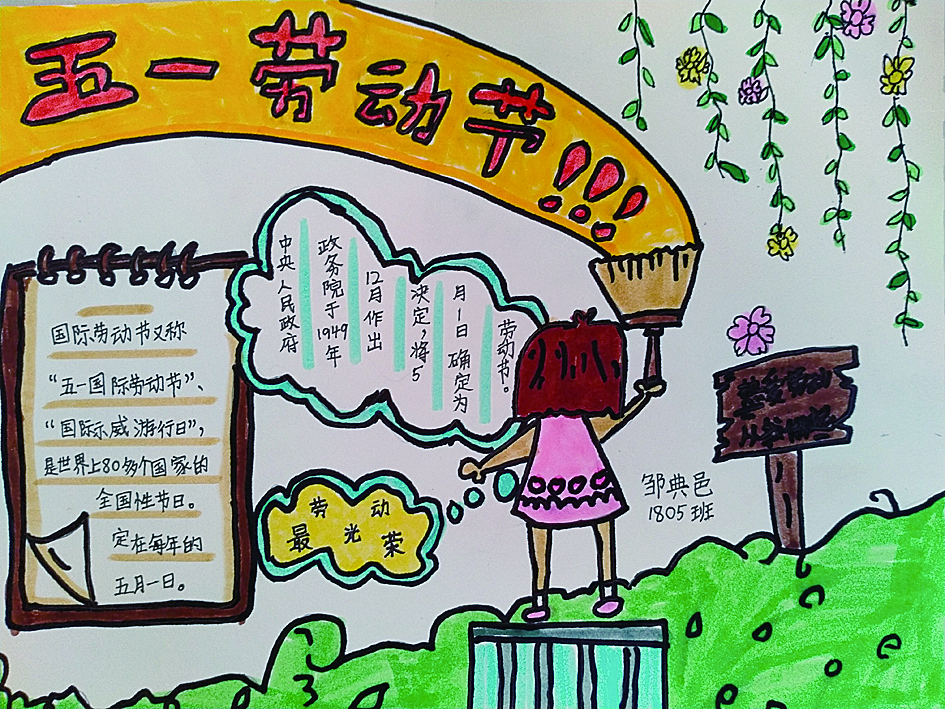 五一劳动节!!!
中央人民政府
政务院于1949年
12月作出
决定，将5
月1日确定为
劳动节。
国际劳动节又称
“五一国际劳动节”、
“国际示威游行日”，
是世界上80多个国家的
全国性节日。
定在每年的
五月一日。
劳动
最光荣
邹典邑
1805班